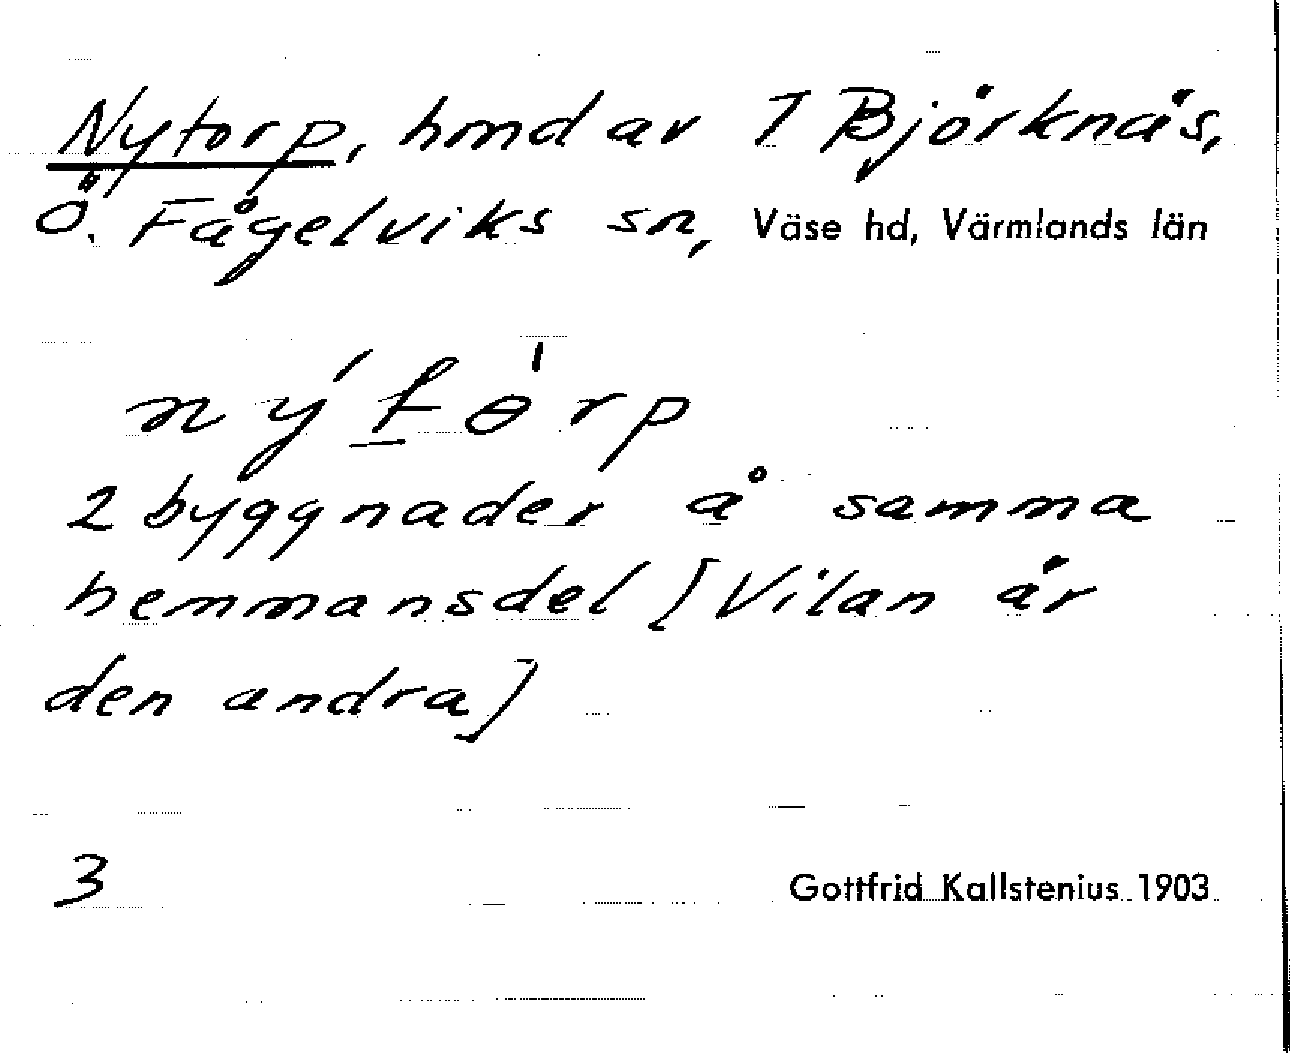 Nytorp, hmd av 1 Björknäs,
Ö. Fågelviks sn, Väse hd, Värmlands län
nýtɵ̀rp
2 byggnader å samma
hemmansdel [Vilan är
den andra]
3
Gottfrid Kallstenius 1903